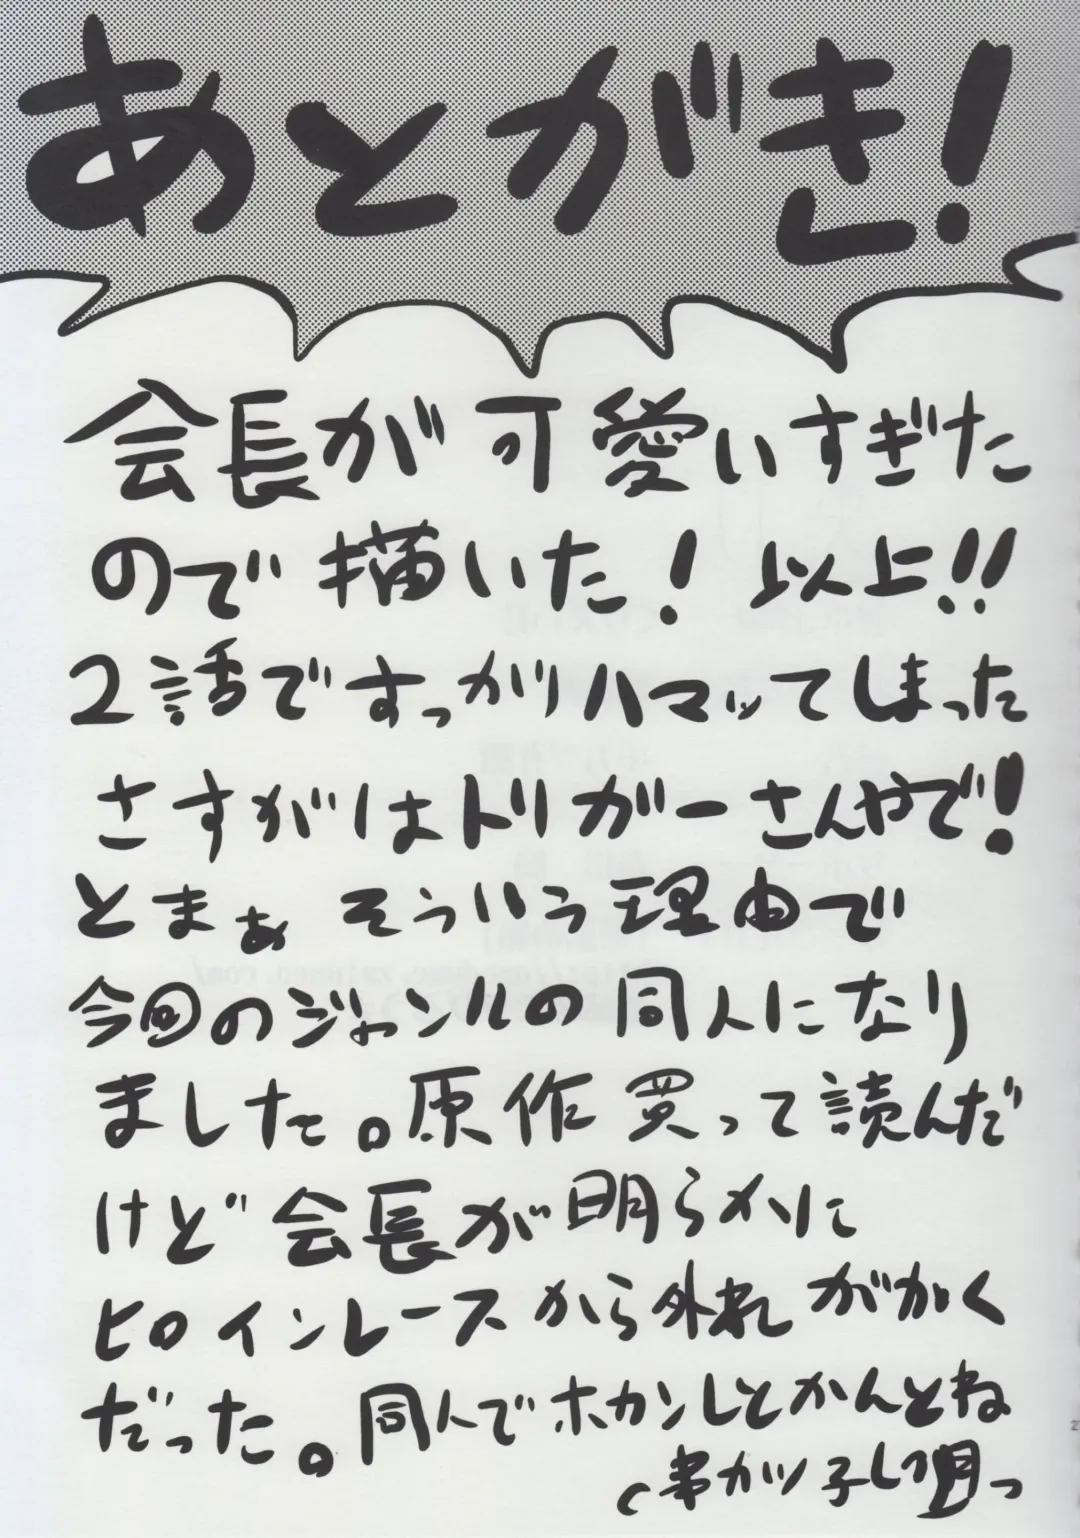 あとがき!
会長が可愛いすぎた
ので描いた! 以上!!
2話ですっかりハマッてしまった
さすがはトリガーさんやで!
とまぁ そういう理由で
今回のジャンルの同人になり
ました。原作買って読んだ
けど会長が明らメリに
ヒロインレースから外れ ががく
だった。同人でホカンしとかんとね